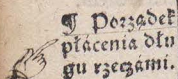 ¶ Porządek
płácenia dłu
gu rzeczámi.